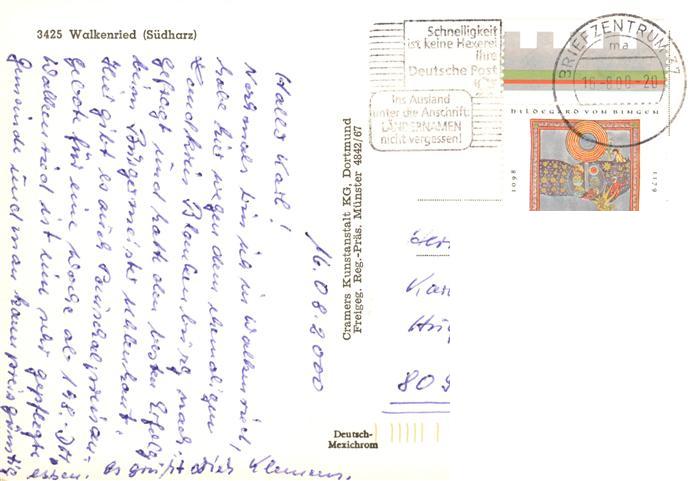 3425 Walkenried (Südharz)
16.08.2000
Hallo Karl!
Nochmals bin ich in Walkenried,
habe hier wegen dem ehemaligen
Landkreis Blankenburg nach-
gefragt und hatte den besten Erfolg
beim Bürgermister
Hier gibt es auch Pauschalpreisan-
gebote für eine Woche ab 198.- DM
Walkenried ist eine sehr gepflegte
Gemeinde und man kann preisgünstig
essen. Es grüßt Dich Klemens.
Cramers Kunstanstalt KG, Dortmund
Freigeg. Reg.-Präs. Münster 4842/67
Deutsch-
Mexichrom
Schnelligkeit
ist keine Hexerei
Ihre
Deutsche Post
AG
Ins Ausland
unter die Anschrift:
LÄNDERNAMEN
nicht vergessen!
BRIEFZENTRUM 37
ma
16-8.00-20
HILDEGARD VON BINGEN
1098
1179
809